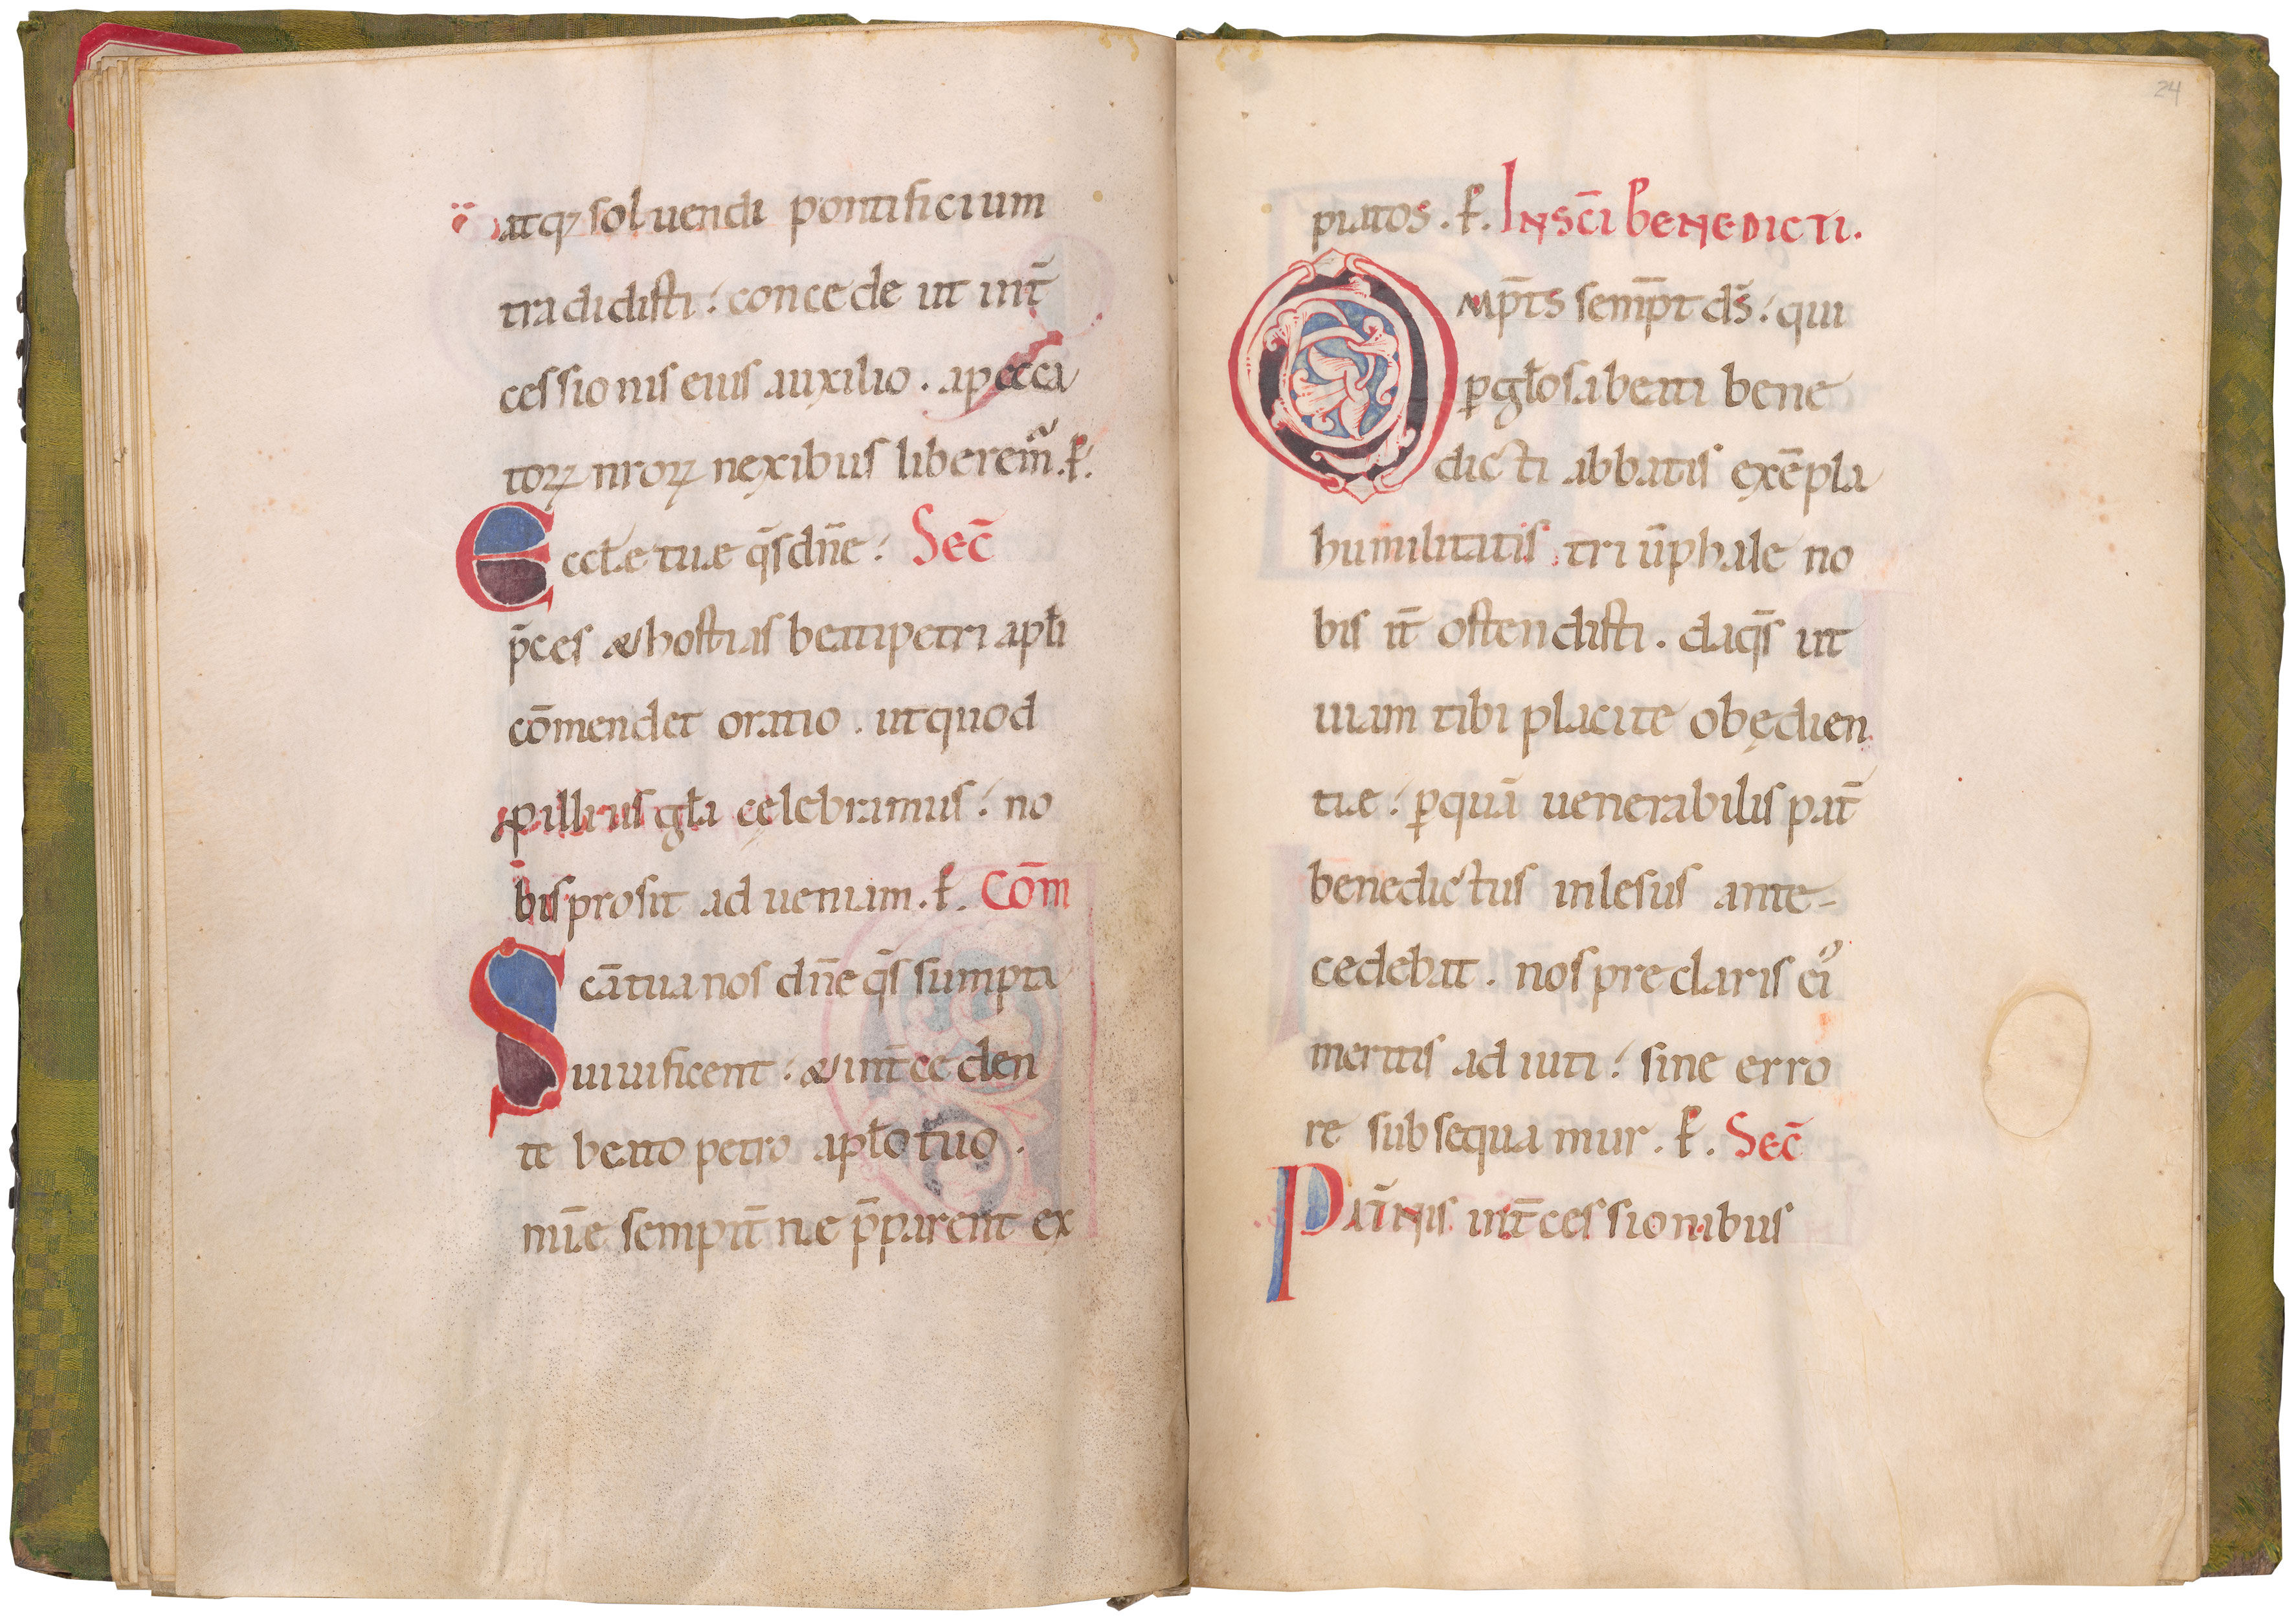 atq; soluendi pontificium
tradidisti: concede ut int̄
cessionis eius auxilio. apecca
torꝝ nrorꝝ nexibus liberem̃. ꝑ.
Eccłe tuæ q̄s dn̄e: Sec̄
p̄ces & hostias beati petri apłi
cōmendet oratio. ut quod
ꝓ illius gła celebramus: no
bis prosit ad ueniam. ꝑ. Cōm
Sc̄a tua nos dn̄e q̄s sumpta
uiuificent: & int̄ceden
te beato petro apło tuo.
uitæ sempit̄næ p̄parent ex
24
piatos. ꝑ. In sc̄i benedicti.
Omp̄ts semp̄t ds̄: qui
ꝑ głosa beati bene
dicti abbatis exēpla
humilitatis. triūphale no
bis it̄ ostendisti. da q̄s ut
uiam tibi placite obędien
tiæ: ꝑ quā uenerabilis pat̄
benedictus inlesus ante-
cedebat. nos preclaris ei᾿
meritis adiuti: sine erro
re subsequamur. ꝑ. Sec̄
Pat̄nis int̄cessionibus